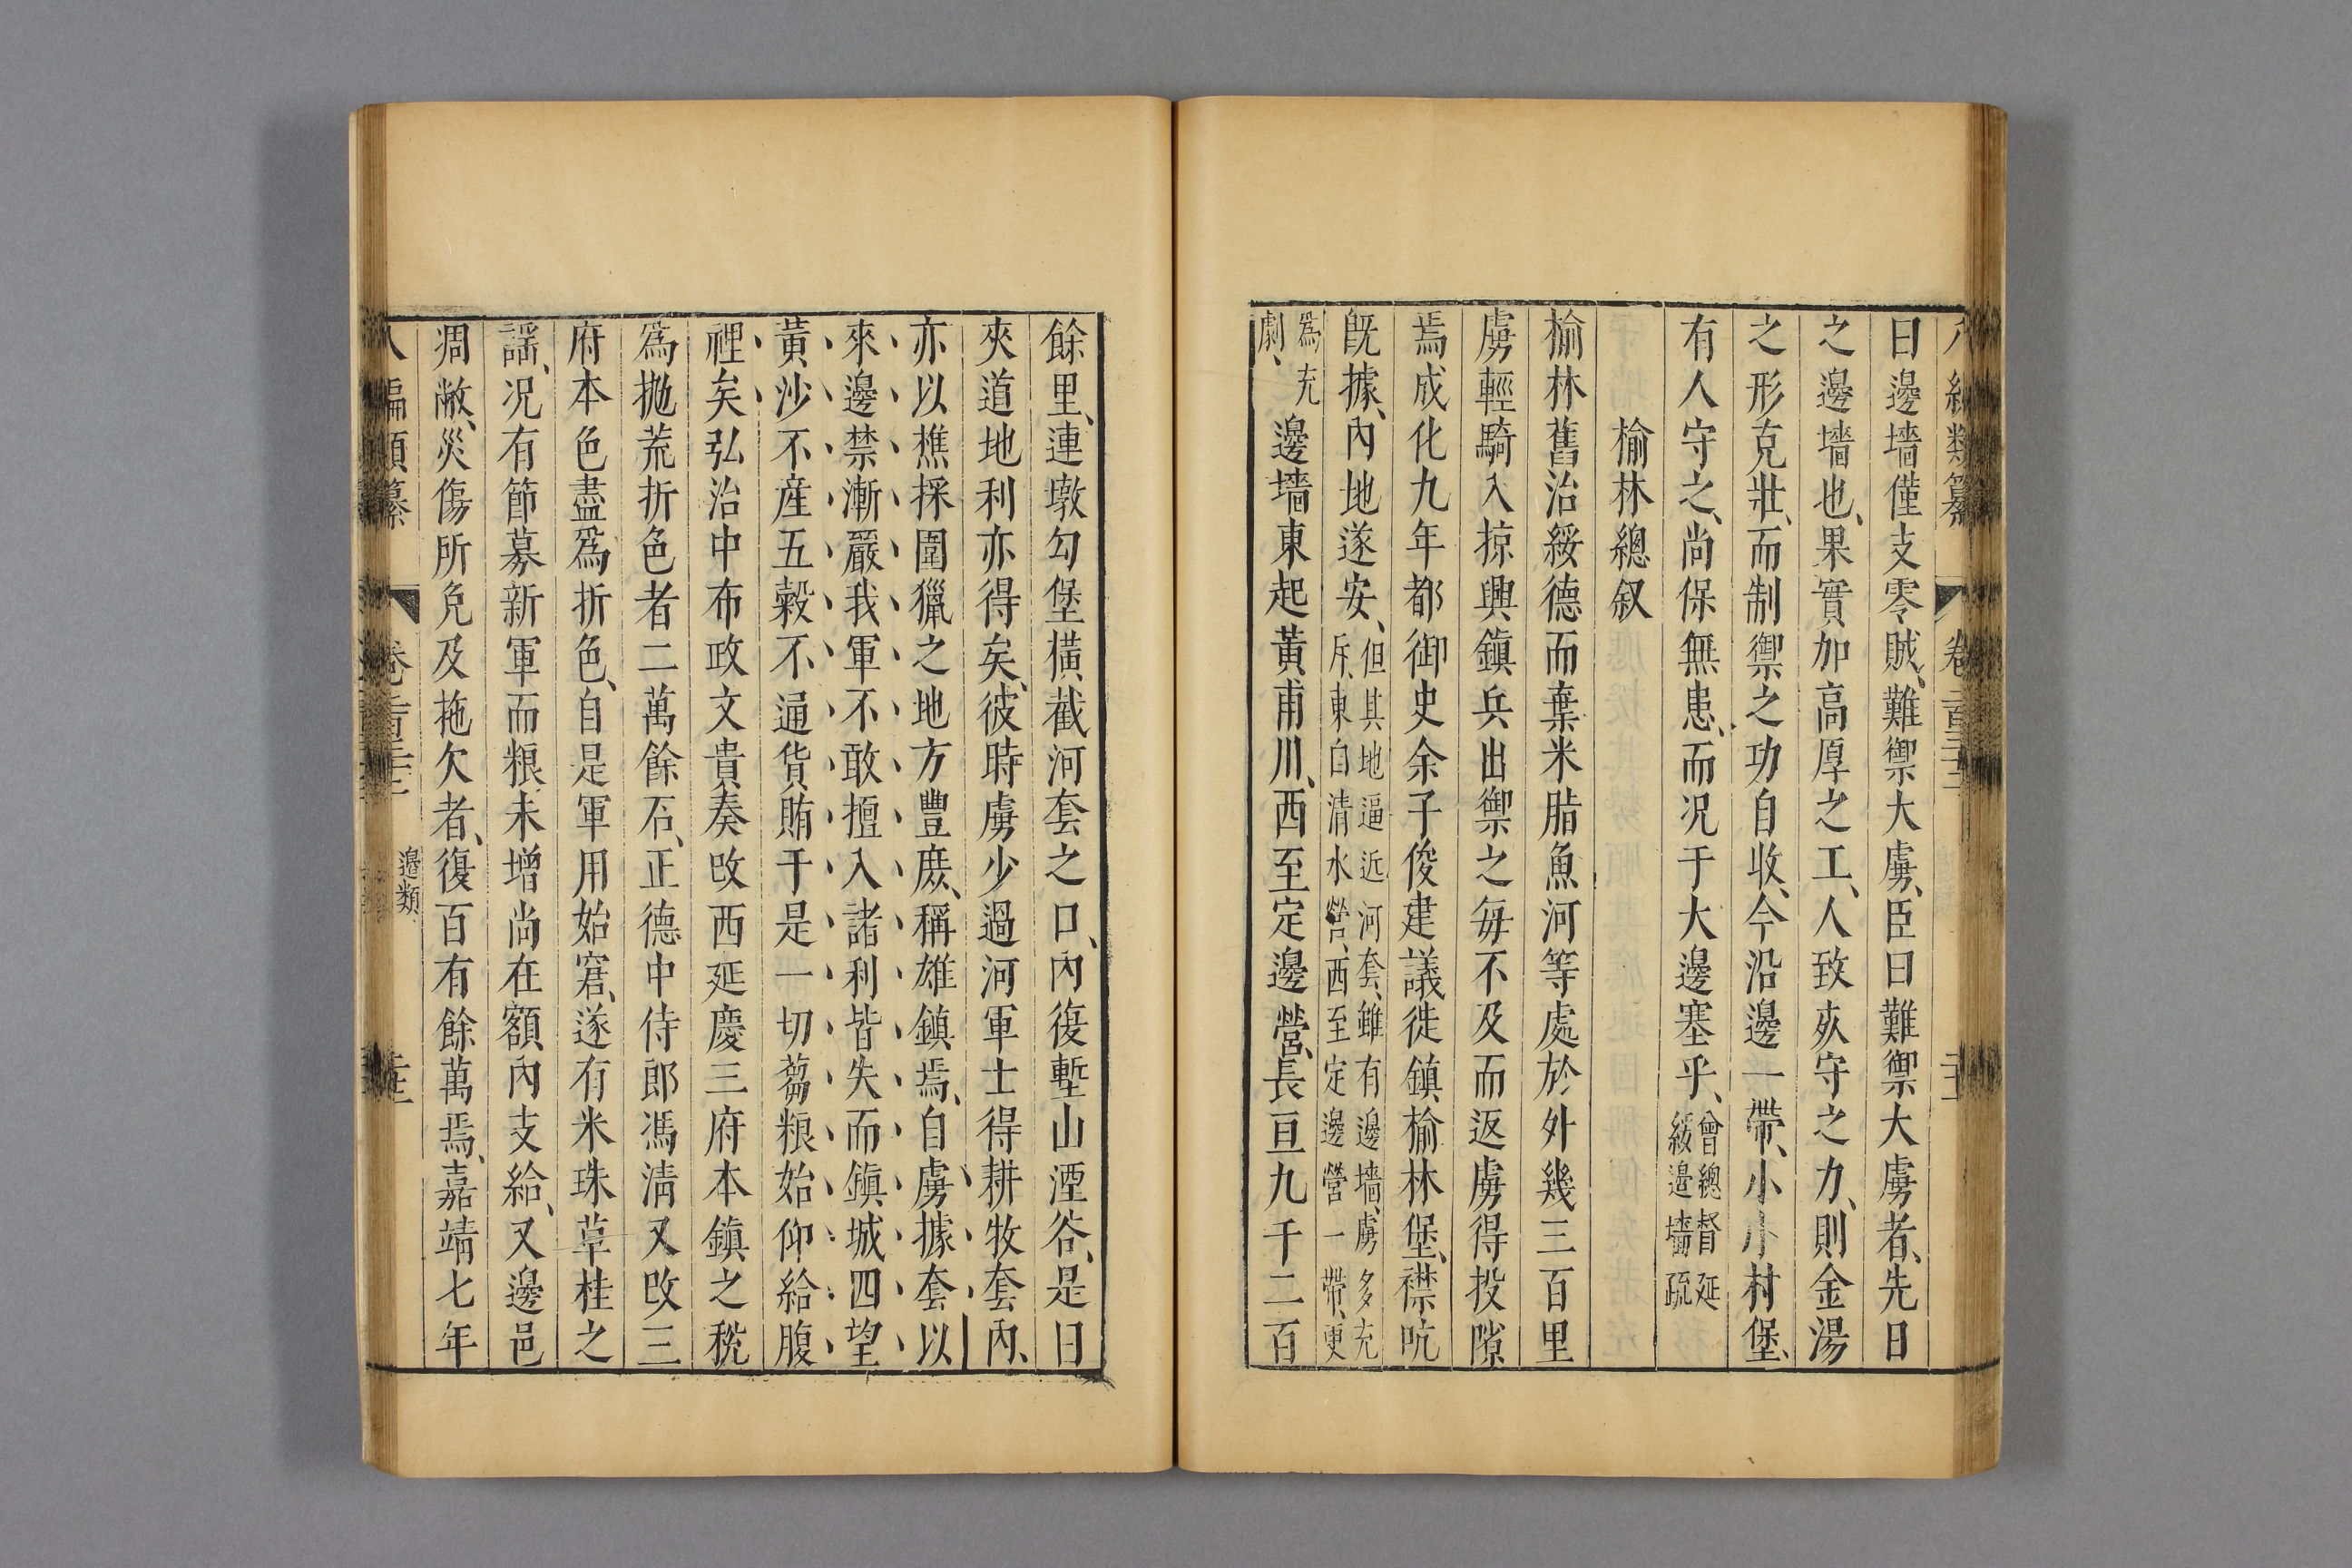 八編類纂 卷一百二十三
曰邊墻僅支零賊、難禦大虜、臣曰難禦大虜者、先日
之邊墻也、果實加高厚之工、人致死守之力、則金湯
之形克壯、而制禦之功自收、今沿邊一帶、小小村堡、
有人守之、尚保無患、而况于大邊塞乎、曾總督延綏邊墻疏
榆林總叙
榆林舊治綏德而棄米脂魚河等處於外幾三百里
虜輕騎入掠興鎮兵出禦之每不及而返虜得投隙
焉、成化九年都御史余子俊建議徙鎮榆林堡、襟吭
旣據、內地遂安、但其地逼近河套、雖有邊墻、虜多充斥、東自清水營、西至定邊營一帶、更
爲充劇、邊墻東起黃甫川、西至定邊營、長亘九千二百
餘里、連墩勾堡橫截河套之口、內復塹山湮谷、是日
夾道地利亦得矣、彼時虜少過河軍士得耕牧套內、
亦以樵採圍獵之地方豐庶、稱雄鎮焉、自虜據套以
來邊禁漸嚴我軍不敢擅入諸利皆失而鎮城四望
黃沙不產五穀不通貨賄于是一切蒭粮始仰給腹
裡矣弘治中布政文貴奏改西延慶三府本鎮之稅
爲抛荒折色者二萬餘石、正德中侍郎馮清又改三
府本色盡爲折色、自是軍用始窘、遂有米珠草桂之
謡、况有節募新軍而粮未增尚在額內支給、又邊邑
凋敝、災傷所免及拖欠者、復百有餘萬焉、嘉靖七年
八編類纂 卷一百二十三 邊類